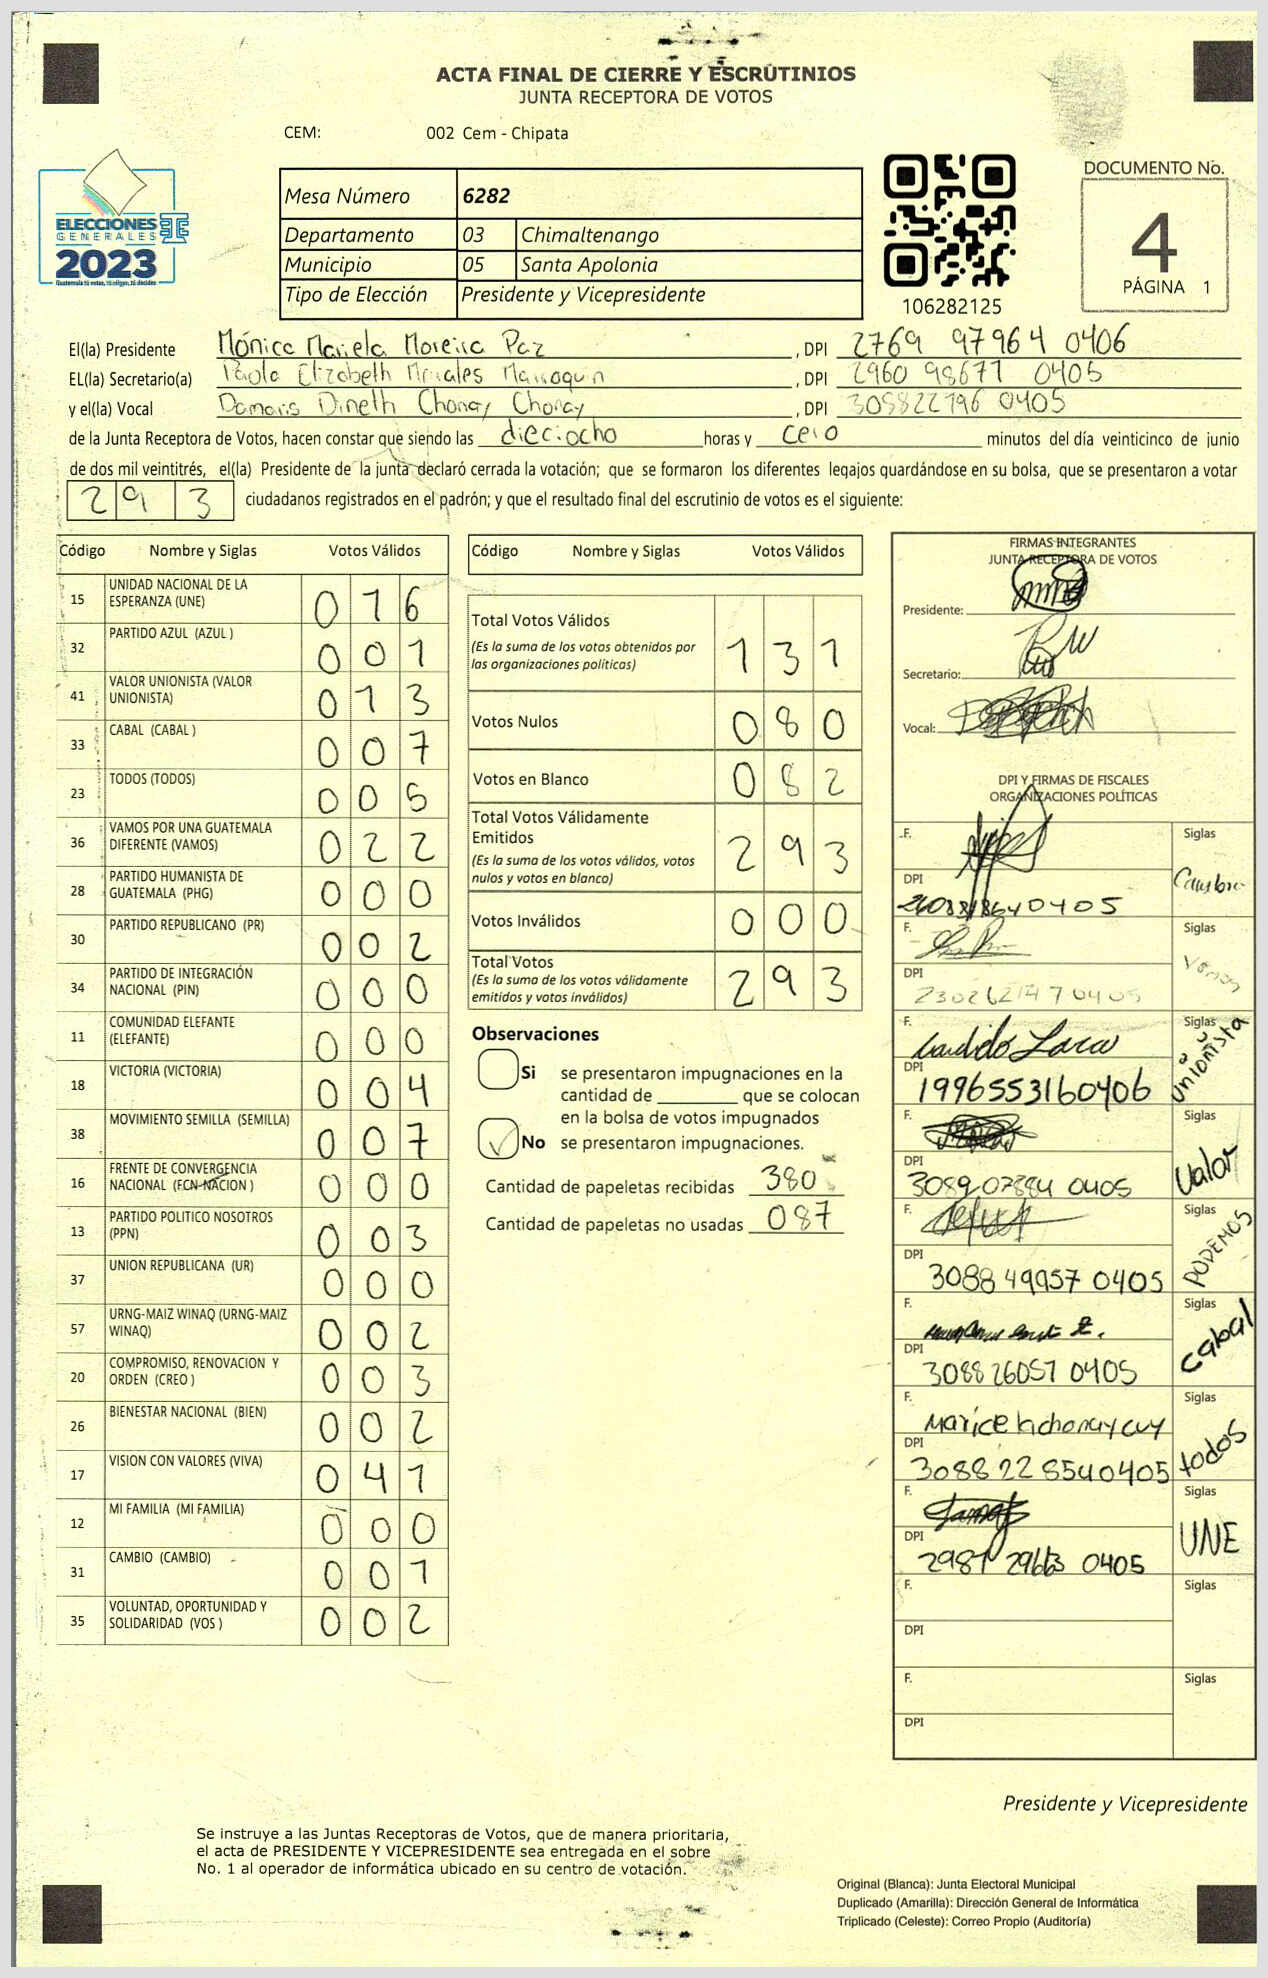 ACTA FINAL DE CIERRE Y ESCRUTINIOS
JUNTA RECEPTORA DE VOTOS
CEM: 002 Cem - Chipata
ELECCIONES
GENERALES
TSE
2023
Guatemala tú votas, tú eliges, tú decides
Mesa Número 6282
Departamento 03 Chimaltenango
Municipio 05 Santa Apolonia
Tipo de Elección Presidente y Vicepresidente
106282125
DOCUMENTO No.
4
PÁGINA 1
El(la) Presidente Mónica Mariela Moreira Paz , DPI 2769 97964 0406
EL(la) Secretario(a) Paola Elizabeth Morales Marroquín , DPI 2960 98677 0405
y el(la) Vocal Damaris Dineth Chonay Chonay , DPI 308822796 0405
de la Junta Receptora de Votos, hacen constar que siendo las dieciocho horas y cero minutos del día veinticinco de junio
de dos mil veintitrés, el(la) Presidente de la junta declaró cerrada la votación; que se formaron los diferentes legajos quardándose en su bolsa, que se presentaron a votar
293 ciudadanos registrados en el padrón; y que el resultado final del escrutinio de votos es el siguiente:
Código Nombre y Siglas Votos Válidos
15 UNIDAD NACIONAL DE LA ESPERANZA (UNE) 016
32 PARTIDO AZUL (AZUL ) 001
41 VALOR UNIONISTA (VALOR UNIONISTA) 013
33 CABAL (CABAL ) 007
23 TODOS (TODOS) 005
36 VAMOS POR UNA GUATEMALA DIFERENTE (VAMOS) 022
28 PARTIDO HUMANISTA DE GUATEMALA (PHG) 000
30 PARTIDO REPUBLICANO (PR) 002
34 PARTIDO DE INTEGRACIÓN NACIONAL (PIN) 000
11 COMUNIDAD ELEFANTE (ELEFANTE) 000
18 VICTORIA (VICTORIA) 004
38 MOVIMIENTO SEMILLA (SEMILLA) 007
16 FRENTE DE CONVERGENCIA NACIONAL (FCN-NACION ) 000
13 PARTIDO POLITICO NOSOTROS (PPN) 003
37 UNION REPUBLICANA (UR) 000
57 URNG-MAIZ WINAQ (URNG-MAIZ WINAQ) 002
20 COMPROMISO, RENOVACION Y ORDEN (CREO ) 003
26 BIENESTAR NACIONAL (BIEN) 002
17 VISION CON VALORES (VIVA) 041
12 MI FAMILIA (MI FAMILIA) 000
31 CAMBIO (CAMBIO) 001
35 VOLUNTAD, OPORTUNIDAD Y SOLIDARIDAD (VOS ) 002
Código Nombre y Siglas Votos Válidos
Total Votos Válidos 131
(Es la suma de los votos obtenidos por
las organizaciones políticas)
Votos Nulos 080
Votos en Blanco 082
Total Votos Válidamente
Emitidos 293
(Es la suma de los votos válidos, votos
nulos y votos en blanco)
Votos Inválidos 000
Total Votos 293
(Es la suma de los votos válidamente
emitidos y votos inválidos)
Observaciones
Si se presentaron impugnaciones en la
cantidad de ________ que se colocan
en la bolsa de votos impugnados
✓ No se presentaron impugnaciones.
Cantidad de papeletas recibidas 380
Cantidad de papeletas no usadas 087
FIRMAS INTEGRANTES
JUNTA RECEPTORA DE VOTOS
Presidente:
Secretario:
Vocal:
DPI Y FIRMAS DE FISCALES
ORGANIZACIONES POLÍTICAS
F. Siglas
DPI Cambio
F. Siglas
DPI Vamos
2302621470405
F. Candido Siglas
DPI Unionista
1996553160406
F. Siglas
DPI Valor
3089 07884 0405
F. Siglas
DPI PODEMOS
3088 49957 0405
F. Siglas
DPI cabal
308826057 0405
F. Siglas
DPI todos
3088 22 8540405
F. Siglas
DPI UNE
2987 29663 0405
F. Siglas
DPI
F. Siglas
DPI
Presidente y Vicepresidente
Se instruye a las Juntas Receptoras de Votos, que de manera prioritaria,
el acta de PRESIDENTE Y VICEPRESIDENTE sea entregada en el sobre
No. 1 al operador de informática ubicado en su centro de votación.
Original (Blanca): Junta Electoral Municipal
Duplicado (Amarilla): Dirección General de Informática
Triplicado (Celeste): Correo Propio (Auditoría)